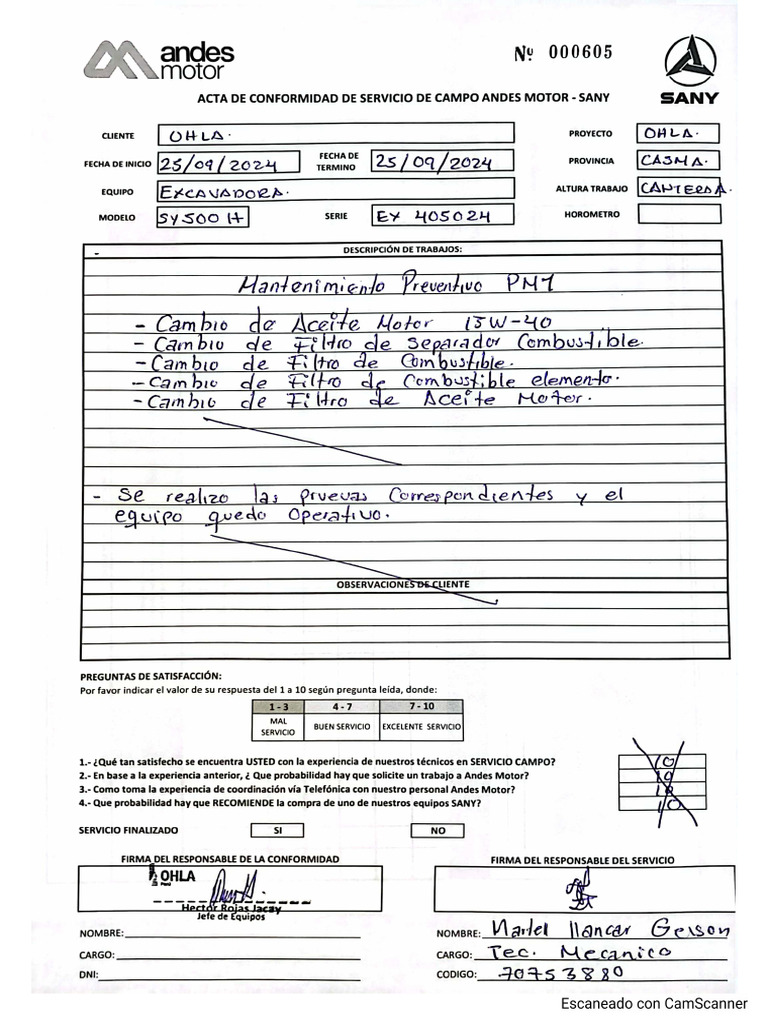 andes motor
Nº 000605
SANY
ACTA DE CONFORMIDAD DE SERVICIO DE CAMPO ANDES MOTOR - SANY
CLIENTE OHLA. PROYECTO OHLA.
FECHA DE INICIO 25/09/2024 FECHA DE TERMINO 25/09/2024 PROVINCIA CASMA.
EQUIPO EXCAVADORA. ALTURA TRABAJO CANTERA.
MODELO SY500H SERIE EX 405024 HOROMETRO
- DESCRIPCIÓN DE TRABAJOS:
Mantenimiento Preventivo PM1
- Cambio de Aceite Motor 15W-40
- Cambio de Filtro de separador Combustible.
- Cambio de Filtro de Combustible.
- Cambio de Filtro de Combustible elemento.
- Cambio de Filtro de Aceite Motor.
- Se realizo las pruevas Correspondientes y el
equipo quedo Operativo.
OBSERVACIONES DE CLIENTE
PREGUNTAS DE SATISFACCIÓN:
Por favor indicar el valor de su respuesta del 1 a 10 según pregunta leída, donde:
1 - 3 4 - 7 7 - 10
MAL SERVICIO BUEN SERVICIO EXCELENTE SERVICIO
1.- ¿Qué tan satisfecho se encuentra USTED con la experiencia de nuestros técnicos en SERVICIO CAMPO? 10
2.- En base a la experiencia anterior, ¿ Que probabilidad hay que solicite un trabajo a Andes Motor? 10
3.- Como toma la experiencia de coordinación vía Telefónica con nuestro personal Andes Motor? 10
4.- Que probabilidad hay que RECOMIENDE la compra de uno de nuestros equipos SANY? 10
SERVICIO FINALIZADO SI NO
FIRMA DEL RESPONSABLE DE LA CONFORMIDAD FIRMA DEL RESPONSABLE DEL SERVICIO
OHLA
Hector Rojas Jacay
Jefe de Equipos
NOMBRE: NOMBRE: Martel llancar Gerson
CARGO: CARGO: Tec. Mecanico
DNI: CODIGO: 70753880
Escaneado con CamScanner